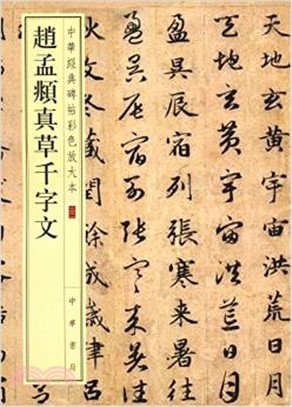 中華經典碑帖彩色放大本
趙孟頫真草千字文
中華書局
天地玄黄宇宙洪荒日月
天地玄黄宇宙洪荒日月
盈昃辰宿列張寒来暑往
盈昃辰宿列張寒来暑往
收冬藏閏餘成歲律吕